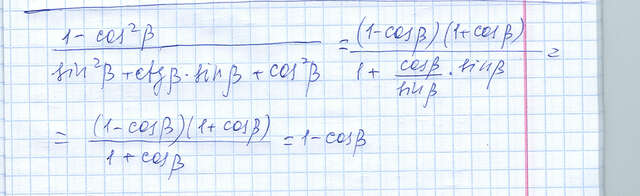 (1 - cos²β) / (sin²β + ctgβ · sinβ + cos²β) = ((1 - cosβ)(1 + cosβ)) / (1 + (cosβ / sinβ) · sinβ) =
= ((1 - cosβ)(1 + cosβ)) / (1 + cosβ) = 1 - cosβ